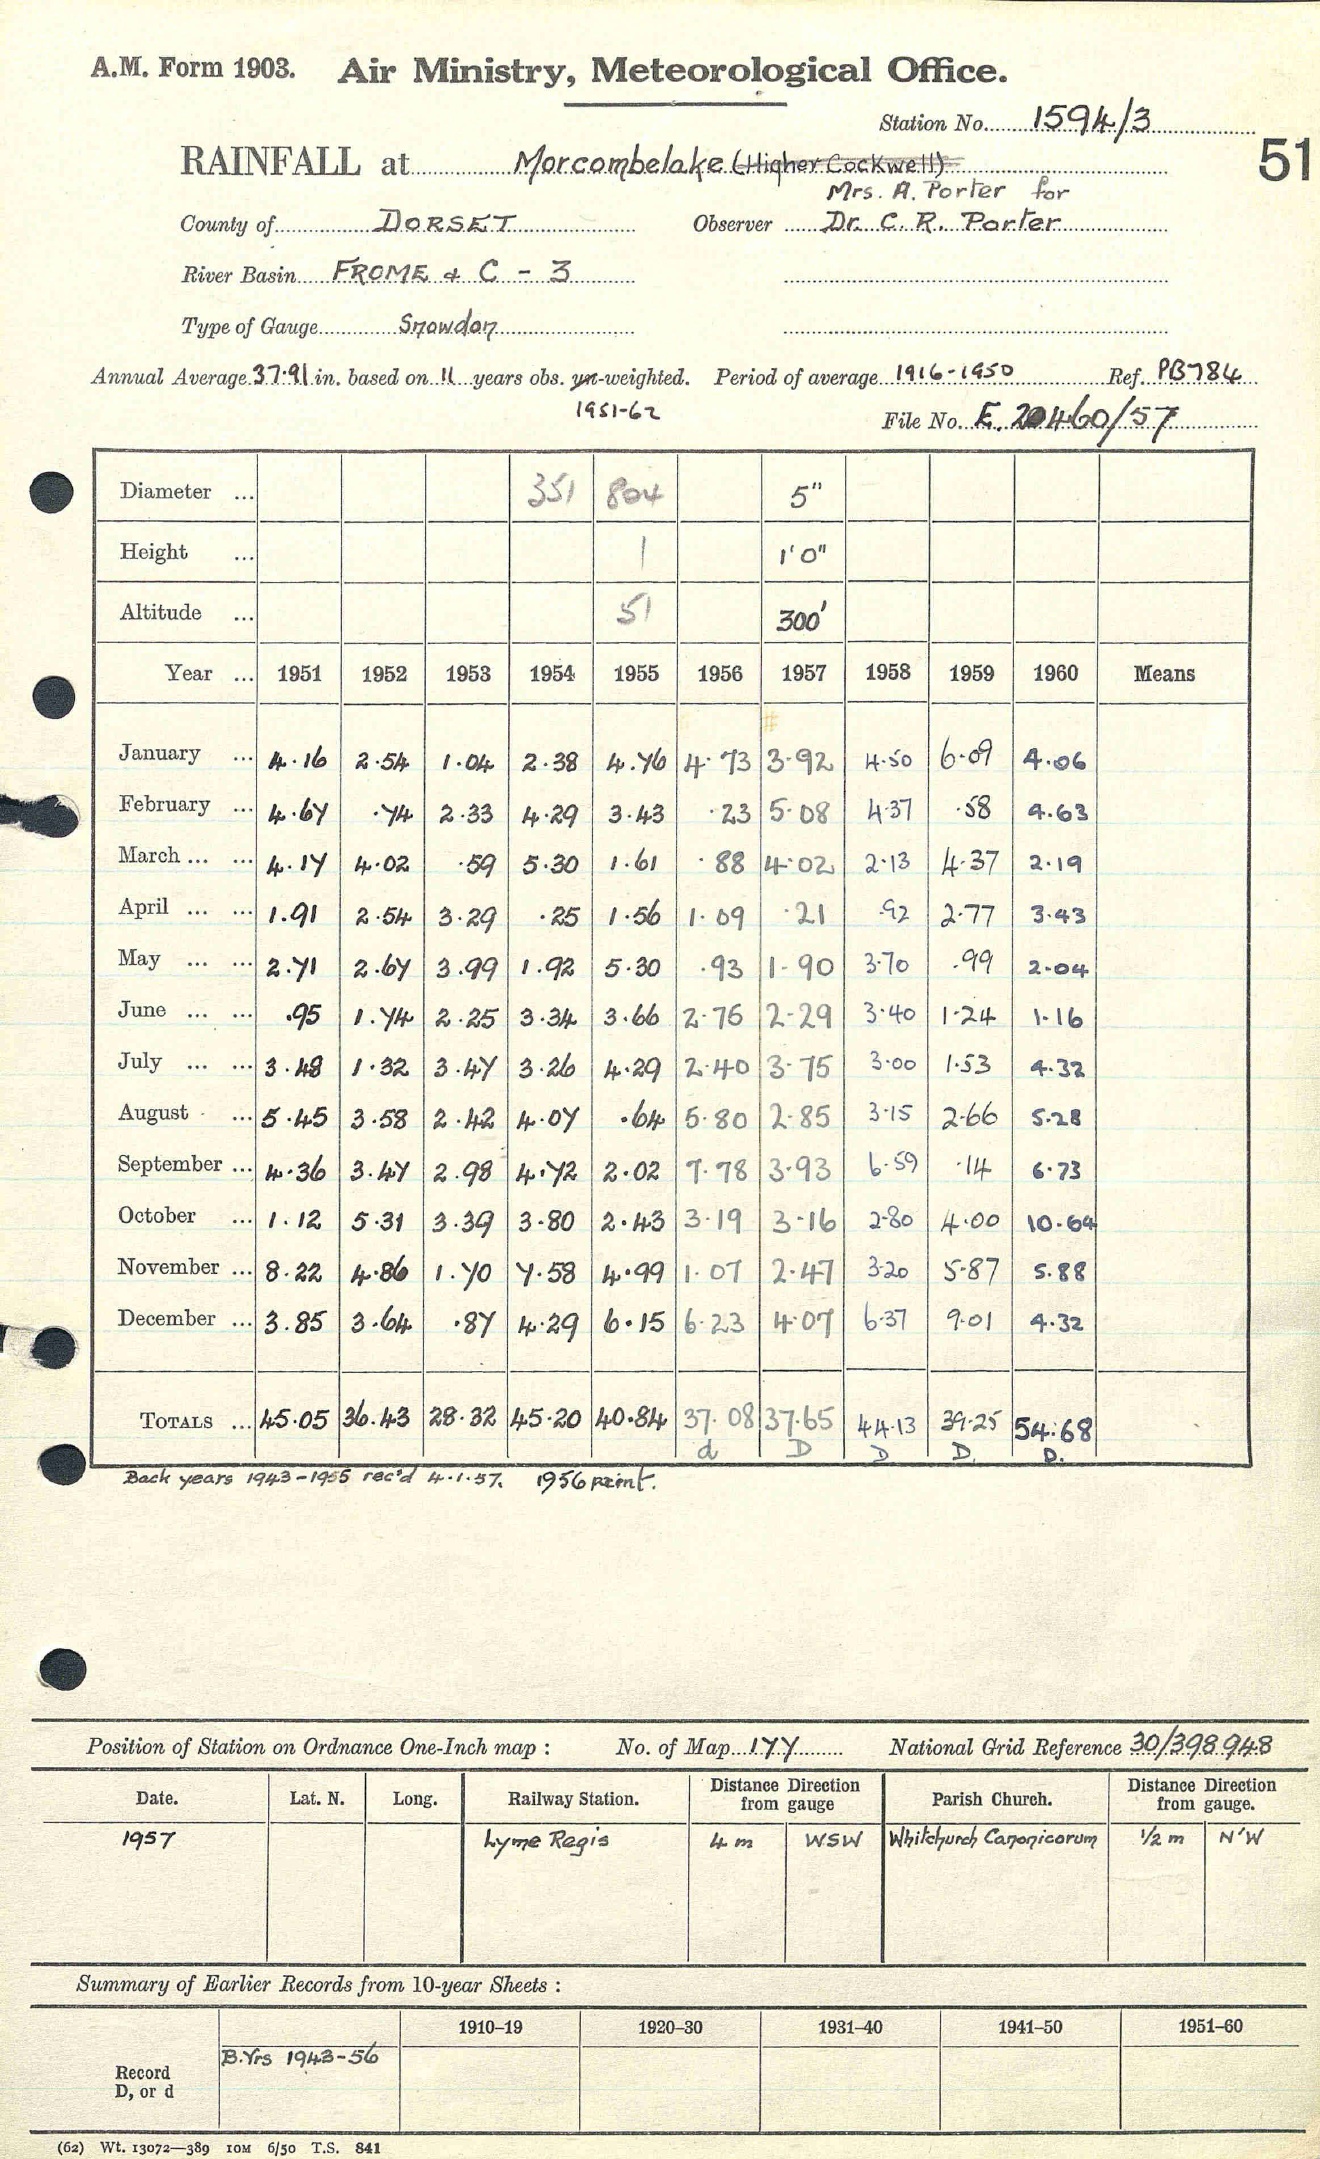 A.M. Form 1903. Air Ministry, Meteorological Office.
Station No. 1594/3
51
RAINFALL at Morcombelake (Higher Cockwell)
Mrs. A. Porter for
County of DORSET Observer Dr. C. R. Porter
River Basin FROME & C - 3
Type of Gauge Snowdon
Annual Average 37.91 in. based on 11 years obs. un-weighted. Period of average 1916-1950 Ref. PB784
1951-62
File No. E. 20460/57
Diameter ... 351 804 5"
Height ... 1 1'0"
Altitude ... 51 300'
Year ... 1951 1952 1953 1954 1955 1956 1957 1958 1959 1960 Means
#
January ... 4.16 2.54 1.04 2.38 4.76 4.73 3.92 4.50 6.09 4.06
February ... 4.67 .74 2.33 4.29 3.43 .23 5.08 4.37 .58 4.63
March ... ... 4.17 4.02 .59 5.30 1.61 .88 4.02 2.13 4.37 2.19
April ... ... 1.91 2.54 3.29 .25 1.56 1.09 .21 .92 2.77 3.43
May ... ... 2.71 2.67 3.99 1.92 5.30 .93 1.90 3.70 .99 2.04
June ... ... .95 1.74 2.25 3.34 3.66 2.76 2.29 3.40 1.24 1.16
July ... ... 3.48 1.32 3.47 3.26 4.29 2.40 3.75 3.00 1.53 4.32
August ... 5.45 3.58 2.42 4.07 .64 5.80 2.85 3.15 2.66 5.28
September ... 4.36 3.47 2.98 4.72 2.02 7.78 3.93 6.59 .14 6.73
October ... 1.12 5.31 3.39 3.80 2.43 3.19 3.16 2.80 4.00 10.64
November ... 8.22 4.86 1.70 7.58 4.99 1.07 2.47 3.20 5.87 5.88
December ... 3.85 3.64 .87 4.29 6.15 6.23 4.07 6.37 9.01 4.32
TOTALS ... 45.05 36.43 28.32 45.20 40.84 37.08 37.65 44.13 39.25 54.68
d D D D. D.
Back years 1943-1955 rec'd 4.1.57. 1956 print.
Position of Station on Ordnance One-Inch map : No. of Map 177 National Grid Reference 30/398948
Date. Lat. N. Long. Railway Station. Distance Direction from gauge Parish Church. Distance Direction from gauge.
1957 Lyme Regis 4 m WSW Whitchurch Canonicorum 1/2 m N'W
Summary of Earlier Records from 10-year Sheets :
1910–19 1920–30 1931–40 1941–50 1951–60
B.Yrs 1943-56
Record
D, or d
(62) Wt. 13072—389 10M 6/50 T.S. 841